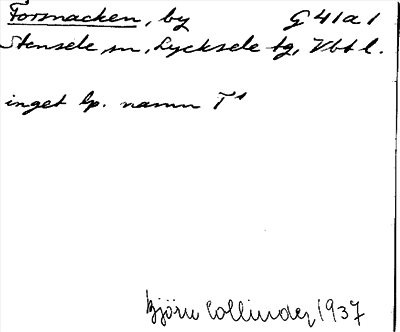 Forsnacken, by G 41 a 1
Stensele sn, Lycksele tg, Vbtl.
inget lp. namn T¹
Björn Collinder 1937